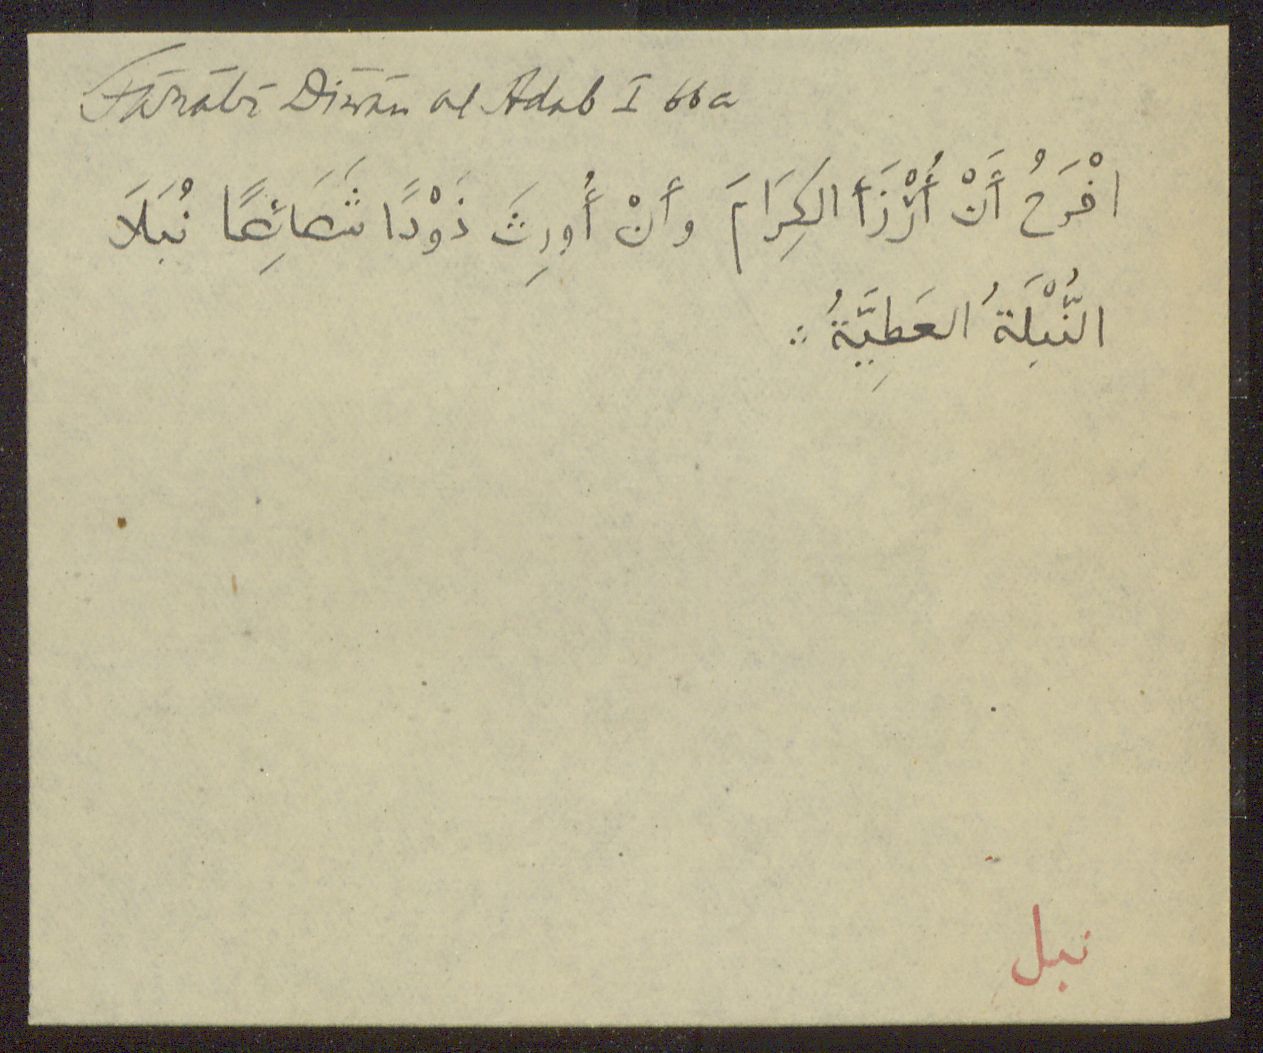 Fārābī Dīwān al Adab I 66a
افْرَحُ أَنْ أُرْزَأَ الكِرَامَ وأَنْ أُورِثَ ذَوْدًا شَصَائِصًا نُبَلَا
النُّبْلَةُ العَطِيَّةُ ∴
نبل